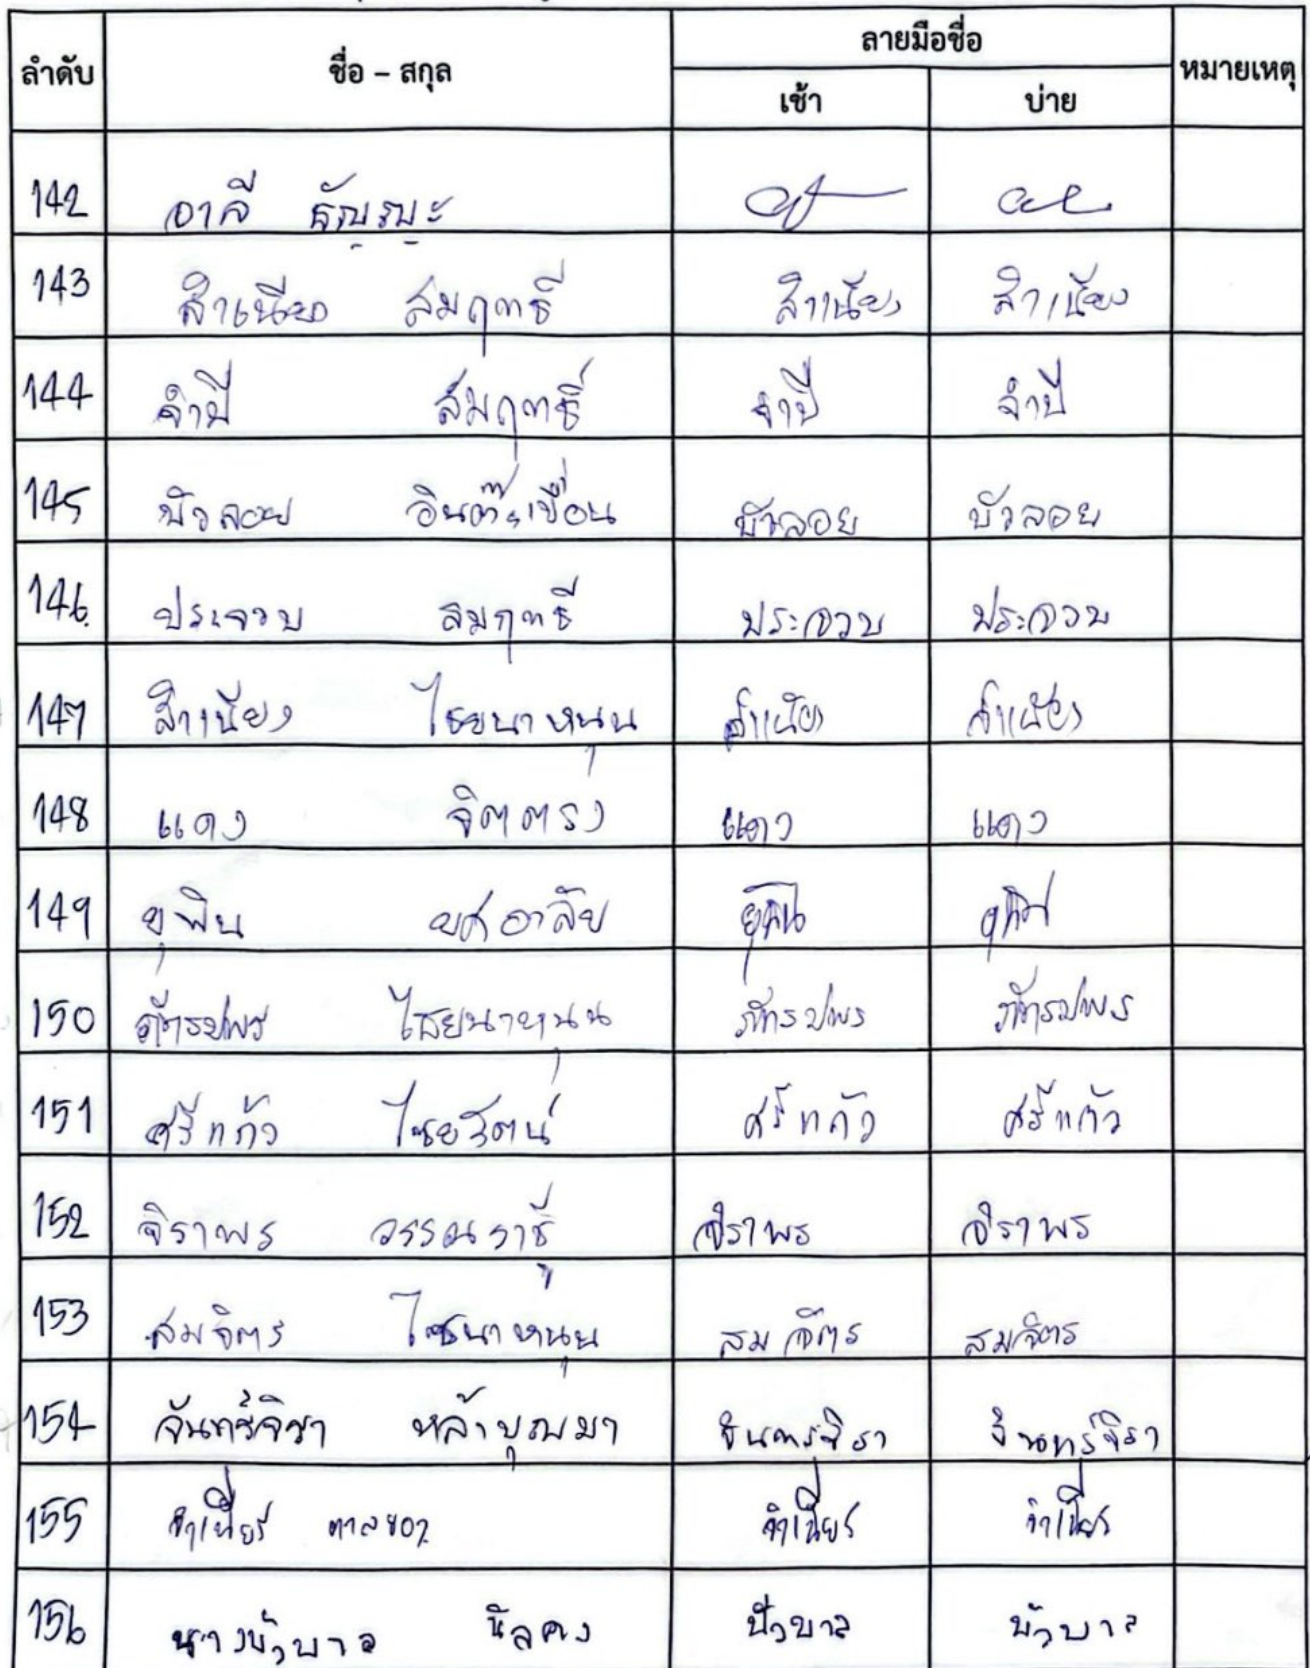 ลำดับ ชื่อ – สกุล ลายมือชื่อ หมายเหตุ
เช้า บ่าย
142 อาลี
143 สำเนียง สมฤทธิ์ สำเนียง สำเนียง
144 จำปี สมฤทธิ์ จำปี จำปี
145 บัวลอย อินต๊ะเขื่อน บัวลอย บัวลอย
146 ประจวบ สมฤทธิ์ ประจวบ ประจวบ
147 สำเนียง ไชยนาหนุน สำเนียง สำเนียง
148 แดง จิตตรง แดง แดง
149 ยุพิน ยศอาลัย ยุพิน
150 ภัทรปพร ไสยนาหนุน ภัทรปพร ภัทรปพร
151 ศรีแก้ว ไชยรัตน์ ศรีแก้ว ศรีแก้ว
152 จิราพร จิราพร จิราพร
153 สมจิตร ไชนาหนุน สมจิตร สมจิตร
154 จันทร์จิรา หล้าบุญมา จันทร์จิรา จันทร์จิรา
155 จำเนียร จำเนียร จำเนียร
156 นางบัวบาล นิลคง บัวบาล บัวบาล